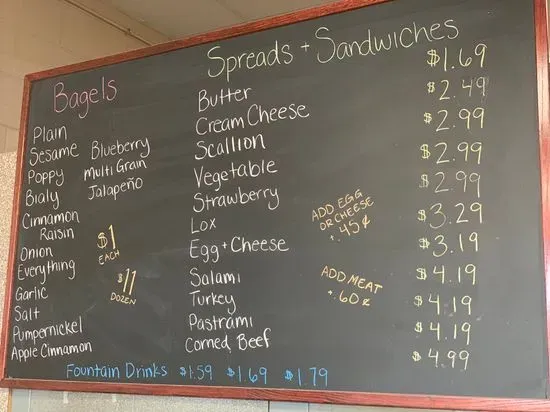 Bagels
Plain
Sesame
Poppy
Bialy
Cinnamon
Raisin
Onion
Everything
Garlic
Salt
Pumpernickel
Apple Cinnamon
Blueberry
Multi Grain
Jalapeño
$1
EACH
$11
DOZEN
Spreads + Sandwiches
Butter $1.69
Cream Cheese $2.49
Scallion $2.99
Vegetable $2.99
Strawberry $2.99
Lox $3.29
Egg + Cheese $3.19
Salami $4.19
Turkey $4.19
Pastrami $4.19
Corned Beef $4.99
ADD EGG
OR CHEESE
+.45¢
ADD MEAT
+.60¢
Fountain Drinks $1.59 $1.69 $1.79